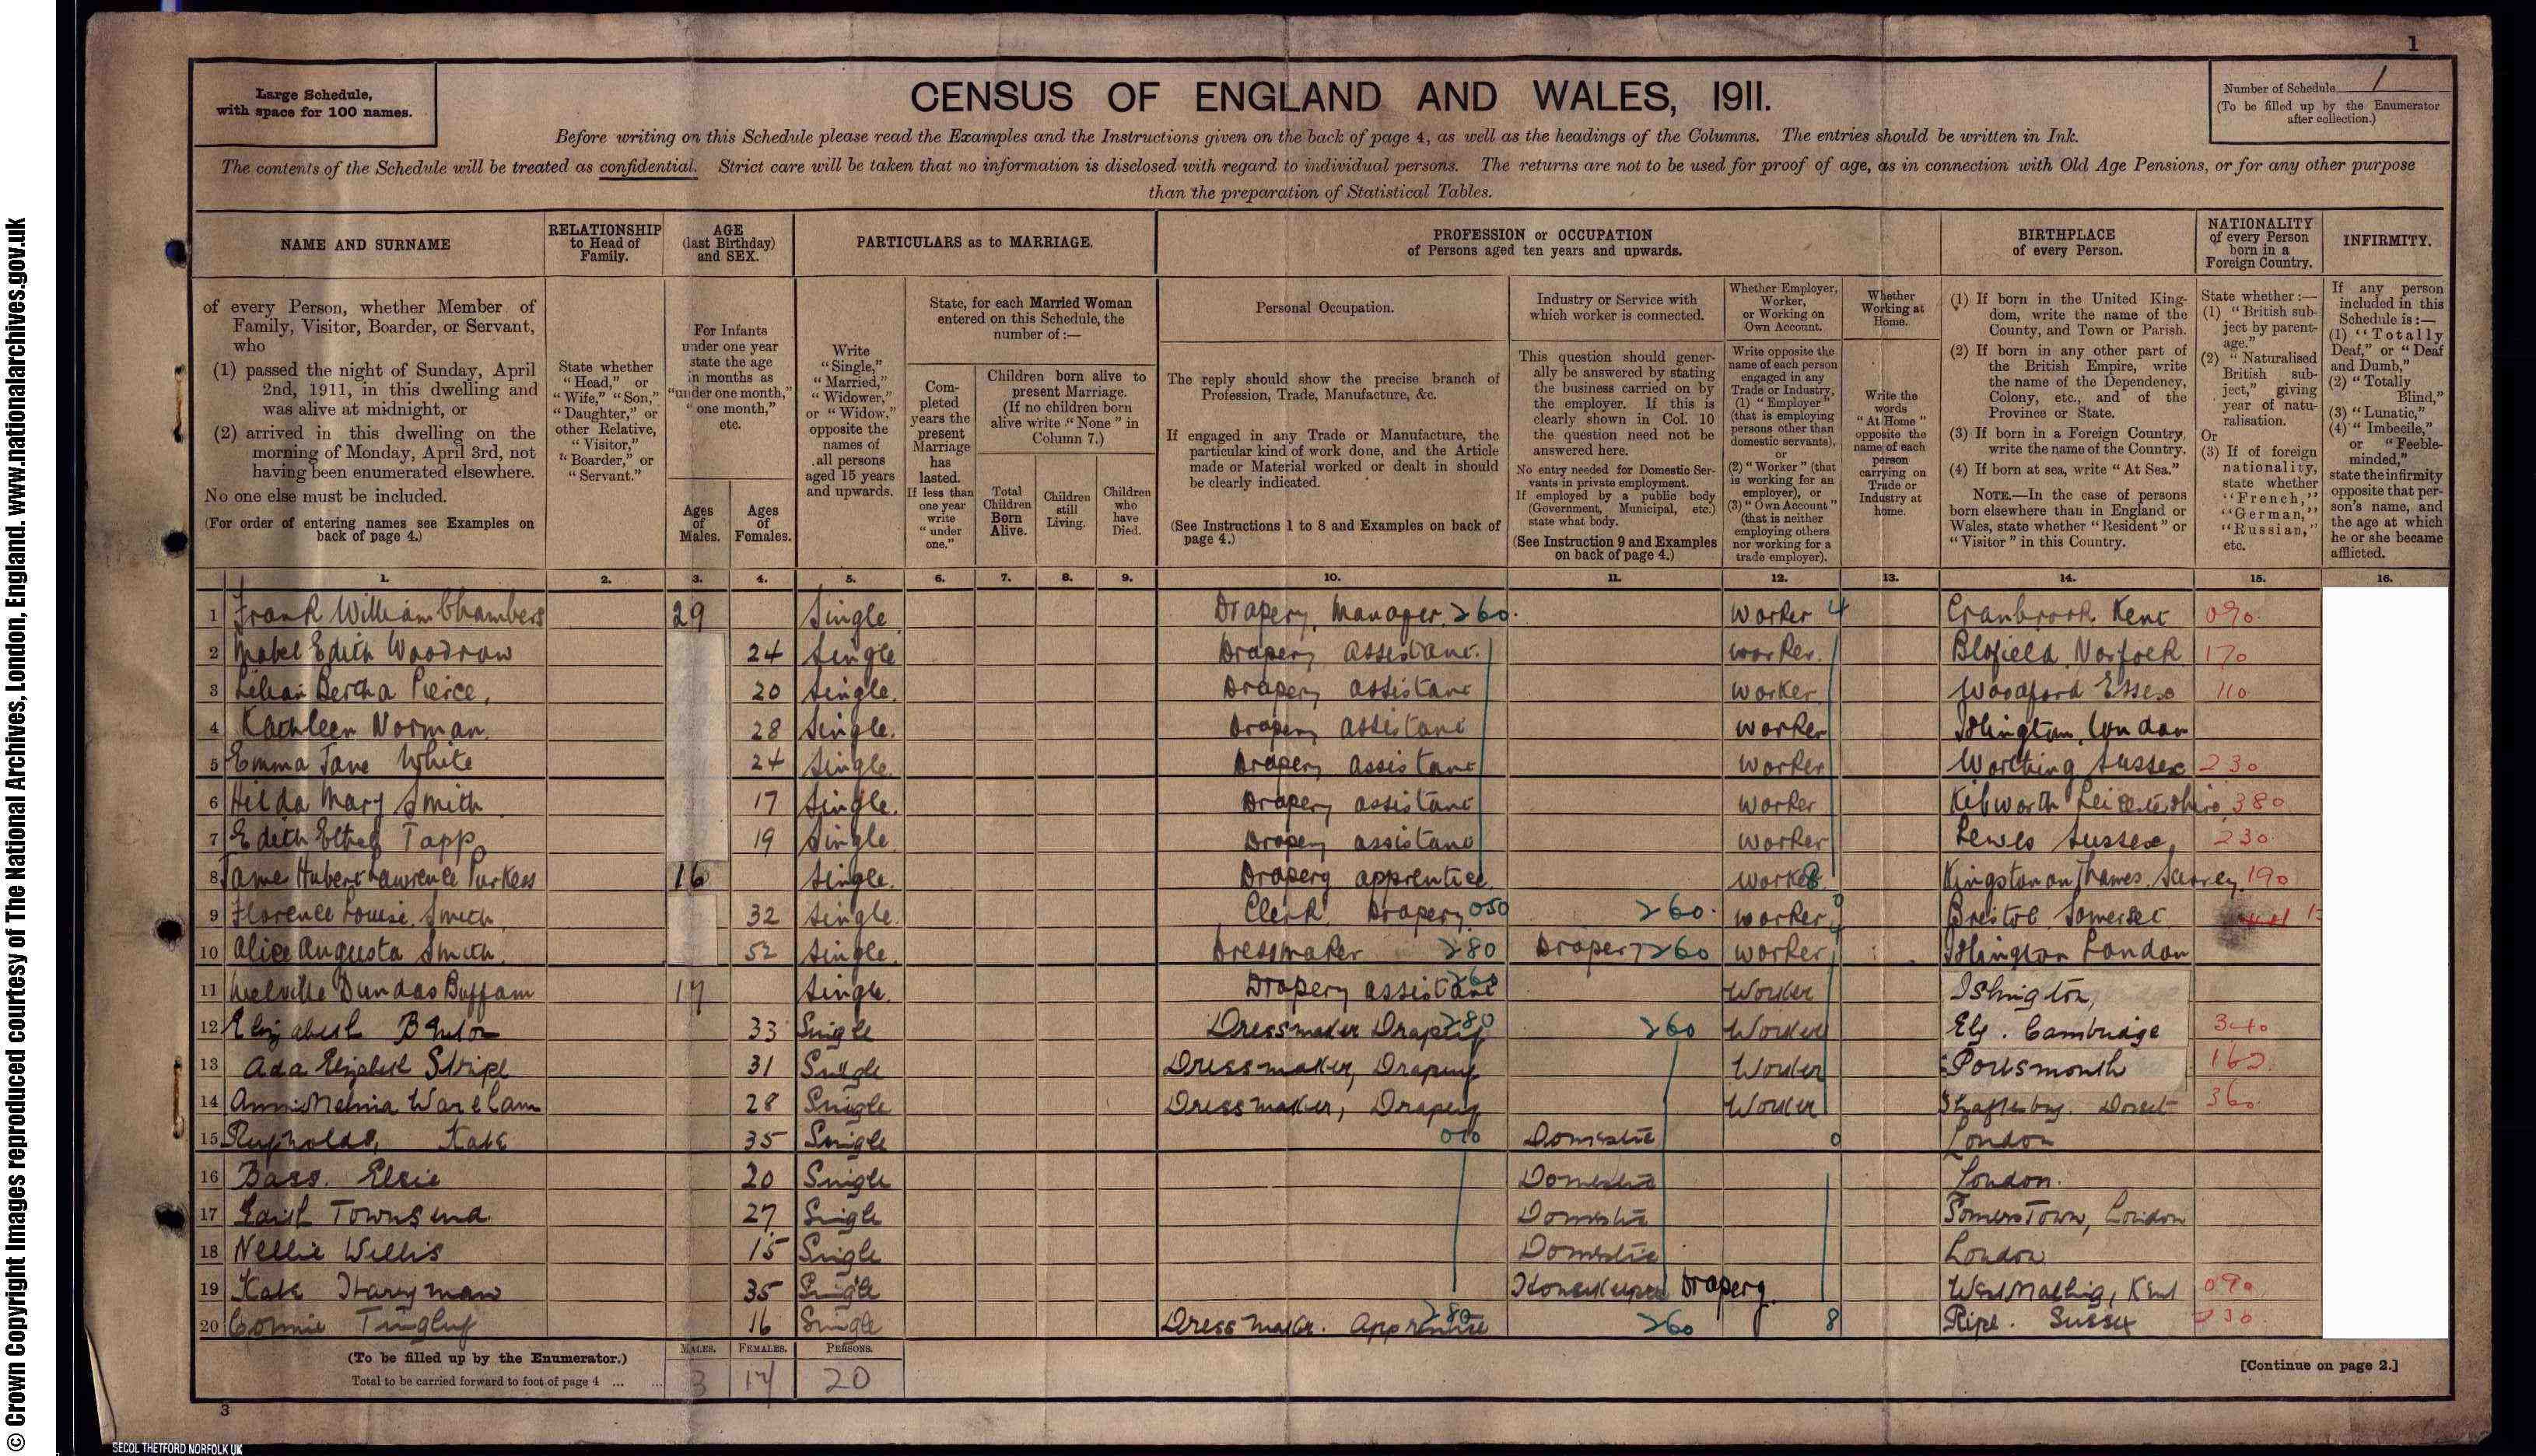 © Crown Copyright Images reproduced courtesy of The National Archives, London, England. www.nationalarchives.gov.uk
1
Large Schedule,
with space for 100 names.
CENSUS OF ENGLAND AND WALES, 1911.
Number of Schedule 1
(To be filled up by the Enumerator
after collection.)
Before writing on this Schedule please read the Examples and the Instructions given on the back of page 4, as well as the headings of the Columns. The entries should be written in Ink.
The contents of the Schedule will be treated as confidential. Strict care will be taken that no information is disclosed with regard to individual persons. The returns are not to be used for proof of age, as in connection with Old Age Pensions, or for any other purpose
than the preparation of Statistical Tables.
NAME AND SURNAME
of every Person, whether Member of
Family, Visitor, Boarder, or Servant,
who
(1) passed the night of Sunday, April
2nd, 1911, in this dwelling and
was alive at midnight, or
(2) arrived in this dwelling on the
morning of Monday, April 3rd, not
having been enumerated elsewhere.
No one else must be included.
(For order of entering names see Examples on
back of page 4.)
RELATIONSHIP
to Head of
Family.
State whether
"Head," or
"Wife," "Son,"
"Daughter," or
other Relative,
"Visitor,"
"Boarder," or
"Servant."
AGE
(last Birthday)
and SEX.
For Infants
under one year
state the age
in months as
"under one month,"
"one month,"
etc.
Ages
of
Males.
Ages
of
Females.
PARTICULARS as to MARRIAGE.
Write
"Single,"
"Married,"
"Widower,"
or "Widow,"
opposite the
names of
all persons
aged 15 years
and upwards.
State, for each Married Woman
entered on this Schedule, the
number of:—
Com-
pleted
years the
present
Marriage
has
lasted.
If less than
one year
write
"under
one."
Children born alive to
present Marriage.
(If no children born
alive write "None" in
Column 7.)
Total
Children
Born
Alive.
Children
still
Living.
Children
who
have
Died.
PROFESSION or OCCUPATION
of Persons aged ten years and upwards.
Personal Occupation.
The reply should show the precise branch of
Profession, Trade, Manufacture, &c.
If engaged in any Trade or Manufacture, the
particular kind of work done, and the Article
made or Material worked or dealt in should
be clearly indicated.
(See Instructions 1 to 8 and Examples on back of
page 4.)
Industry or Service with
which worker is connected.
This question should gener-
ally be answered by stating
the business carried on by
the employer. If this is
clearly shown in Col. 10
the question need not be
answered here.
No entry needed for Domestic Ser-
vants in private employment.
If employed by a public body
(Government, Municipal, etc.)
state what body.
(See Instruction 9 and Examples
on back of page 4.)
Whether Employer,
Worker,
or Working on
Own Account.
Write opposite the
name of each person
engaged in any
Trade or Industry,
(1) "Employer"
(that is employing
persons other than
domestic servants),
or
(2) "Worker" (that
is working for an
employer), or
(3) "Own Account"
(that is neither
employing others
nor working for a
trade employer).
Whether
Working at
Home.
Write the
words
"At Home"
opposite the
name of each
person
carrying on
Trade or
Industry at
home.
BIRTHPLACE
of every Person.
(1) If born in the United King-
dom, write the name of the
County, and Town or Parish.
(2) If born in any other part of
the British Empire, write
the name of the Dependency,
Colony, etc., and of the
Province or State.
(3) If born in a Foreign Country,
write the name of the Country.
(4) If born at sea, write "At Sea."
NOTE.—In the case of persons
born elsewhere than in England or
Wales, state whether "Resident" or
"Visitor" in this Country.
NATIONALITY
of every Person
born in a
Foreign Country.
State whether:—
(1) "British sub-
ject by parent-
age."
(2) "Naturalised
British sub-
ject," giving
year of natu-
ralisation.
Or
(3) If of foreign
nationality,
state whether
"French,"
"German,"
"Russian,"
etc.
INFIRMITY.
If any person
included in this
Schedule is:—
(1) "Totally
Deaf," or "Deaf
and Dumb,"
(2) "Totally
Blind,"
(3) "Lunatic,"
(4) "Imbecile,"
or "Feeble-
minded,"
state the infirmity
opposite that per-
son's name, and
the age at which
he or she became
afflicted.
1. 2. 3. 4. 5. 6. 7. 8. 9. 10. 11. 12. 13. 14. 15. 16.
1 Frank William Chambers 29 Single Drapery Manager 260. Worker 4 Cranbrook Kent 090.
2 Mabel Edith Woodrow 24 Single Drapery Assistant. worker. Blofield Norfolk 170
3 Lilian Bertha Pierce, 20 Single. Drapery assistant Worker Woodford Essex 110
4 Kathleen Norman. 28 Single. Drapery assistant worker Islington, London
5 Emma Jane White 24 Single. Drapery assistant Worker Worthing Sussex 230
6 Hilda Mary Smith 17 Single. Drapery assistant Worker Kibworth Leicestershire 380
7 Edith Ethel Tapp 19 Single. Drapery assistant Worker Lewes Sussex, 230
8 James Hubert Lawrence Purkess 16 Single. Drapery apprentice. Worker 8 Kingston on Thames. Surrey 190
9 Florence Louise Smith 32 Single. Clerk Drapery 050 260. worker Bristol Somerset
10 Alice Augusta Smith. 52 Single. Dressmaker 280 Drapery 260 worker Islington London
11 Melville Dundas Buffam 17 Single. Drapery assistant 260 Worker Islington,
12 Elizabeth 33 Single Dressmaker Drapery 280 260 Worker Ely. Cambridge 340
13 Ada Elizabeth Stripe 31 Single Dressmaker, Drapery Worker Portsmouth 160
14 Wareham 28 Single Dressmaker, Drapery Worker Shaftesbury. Dorset 360
15 Reynolds, Kate 35 Single 010 Domestic 0 London
16 Bass. Elsie 20 Single Domestic London.
17 Edith Townsend. 27 Single Domestic Somerstown, London
18 Nellie Willis 15 Single Domestic London
19 Kate Harryman 35 Single Housekeeper Drapery West Malling, Kent 090
20 Connie Tingley 16 Single Dressmaker. Apprentice 280 260 8 Ripe. Sussex 230
(To be filled up by the Enumerator.)
Total to be carried forward to foot of page 4 ... ...
MALES. FEMALES. PERSONS.
3 17 20
[Continue on page 2.]
3
SECOL THETFORD NORFOLK UK